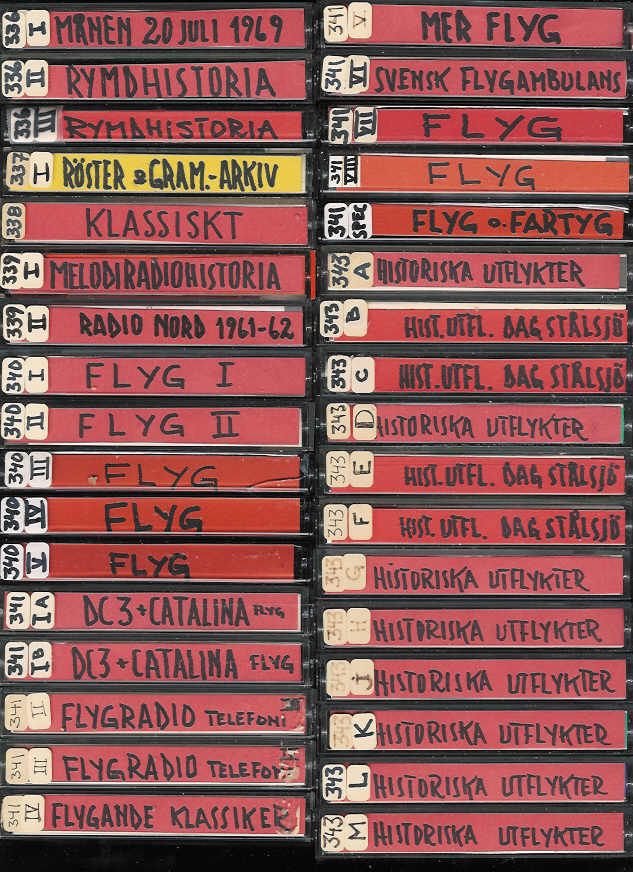 336 I MÅNEN 20 JULI 1969
336 II RYMDHISTORIA
336 III RYMDHISTORIA
337 I RÖSTER & GRAM.-ARKIV
338 KLASSISKT
339 I MELODIRADIOHISTORIA
339 II RADIO NORD 1961-62
340 I FLYG I
340 II FLYG II
340 III FLYG
340 IV FLYG
340 V FLYG
341 IA DC3+CATALINA FLYG
341 IB DC3+CATALINA FLYG
341 II FLYGRADIO TELEFONI
341 III FLYGRADIO TELEFONI
341 IV FLYGANDE KLASSIKER
341 V MER FLYG
341 VI SVENSK FLYGAMBULANS
341 VII FLYG
341 VIII FLYG
341 SPEC FLYG O. FARTYG
343 A HISTORISKA UTFLYKTER
343 B HIST. UTFL. DAG STÅLSJÖ
343 C HIST. UTFL. DAG STÅLSJÖ
343 D HISTORISKA UTFLYKTER
343 E HIST. UTFL. DAG STÅLSJÖ
343 F HIST. UTFL. DAG STÅLSJÖ
343 G HISTORISKA UTFLYKTER
343 H HISTORISKA UTFLYKTER
343 J HISTORISKA UTFLYKTER
343 K HISTORISKA UTFLYKTER
343 L HISTORISKA UTFLYKTER
343 M HISTORISKA UTFLYKTER